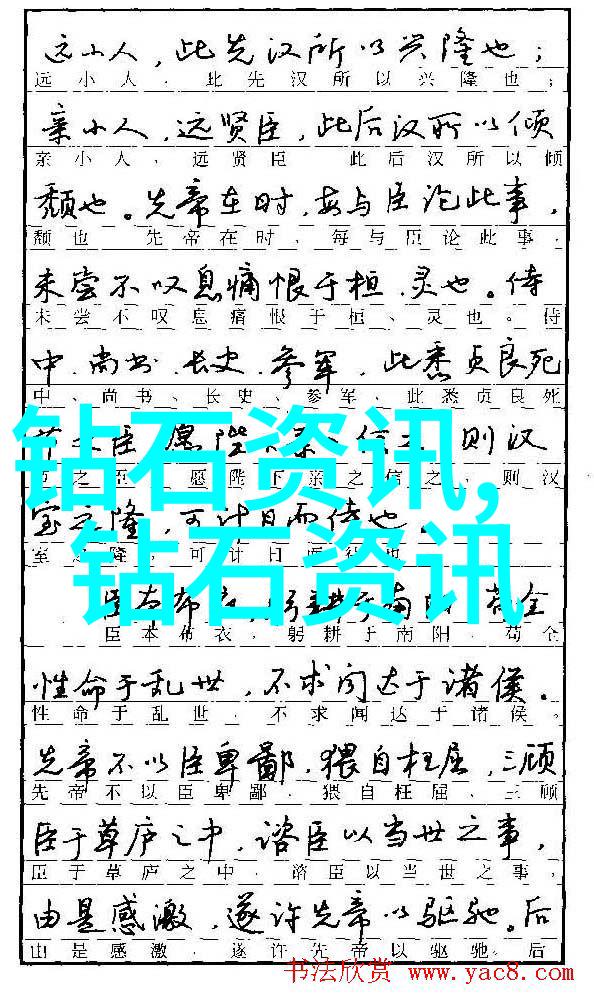 远小人，此先汉所以兴隆也；
远小人，此先汉所以兴隆也；
亲小人，远贤臣，此后汉所以倾
亲小人，远贤臣 此后汉所以倾
颓也。先帝在时，每与臣论此事，
颓也 先帝在时，每与臣论此事，
未尝不叹息痛恨于桓、灵也。侍
未尝不叹息痛恨于桓、灵也。侍
中、尚书、长史、参军，此悉贞良死
中、尚书、长史、参军，此悉贞良死
节之臣 愿陛 亲 信之 则汉
节之臣 愿陛下亲之信之，则汉
钻石资讯,
室之隆，可计日而待也。
室之隆 可计日而待也
钻石资讯
臣本布衣，躬耕于南阳 苟全
臣本布衣，躬耕于南阳，苟全
性命于乱世，不求闻达于诸侯。
性命于乱世，不求闻达于诸侯。
先帝不以臣卑鄙，猥自枉屈，三顾
先帝不以臣卑鄙，猥自枉屈，三顾
臣于草庐之中，谘臣以当世之事，
臣于草庐之中，谘臣以当世之事，
由是感激，遂许先帝以驱驰。后
由是感激，遂许先帝以驱驰。后
书法欣赏 www.yac8.com